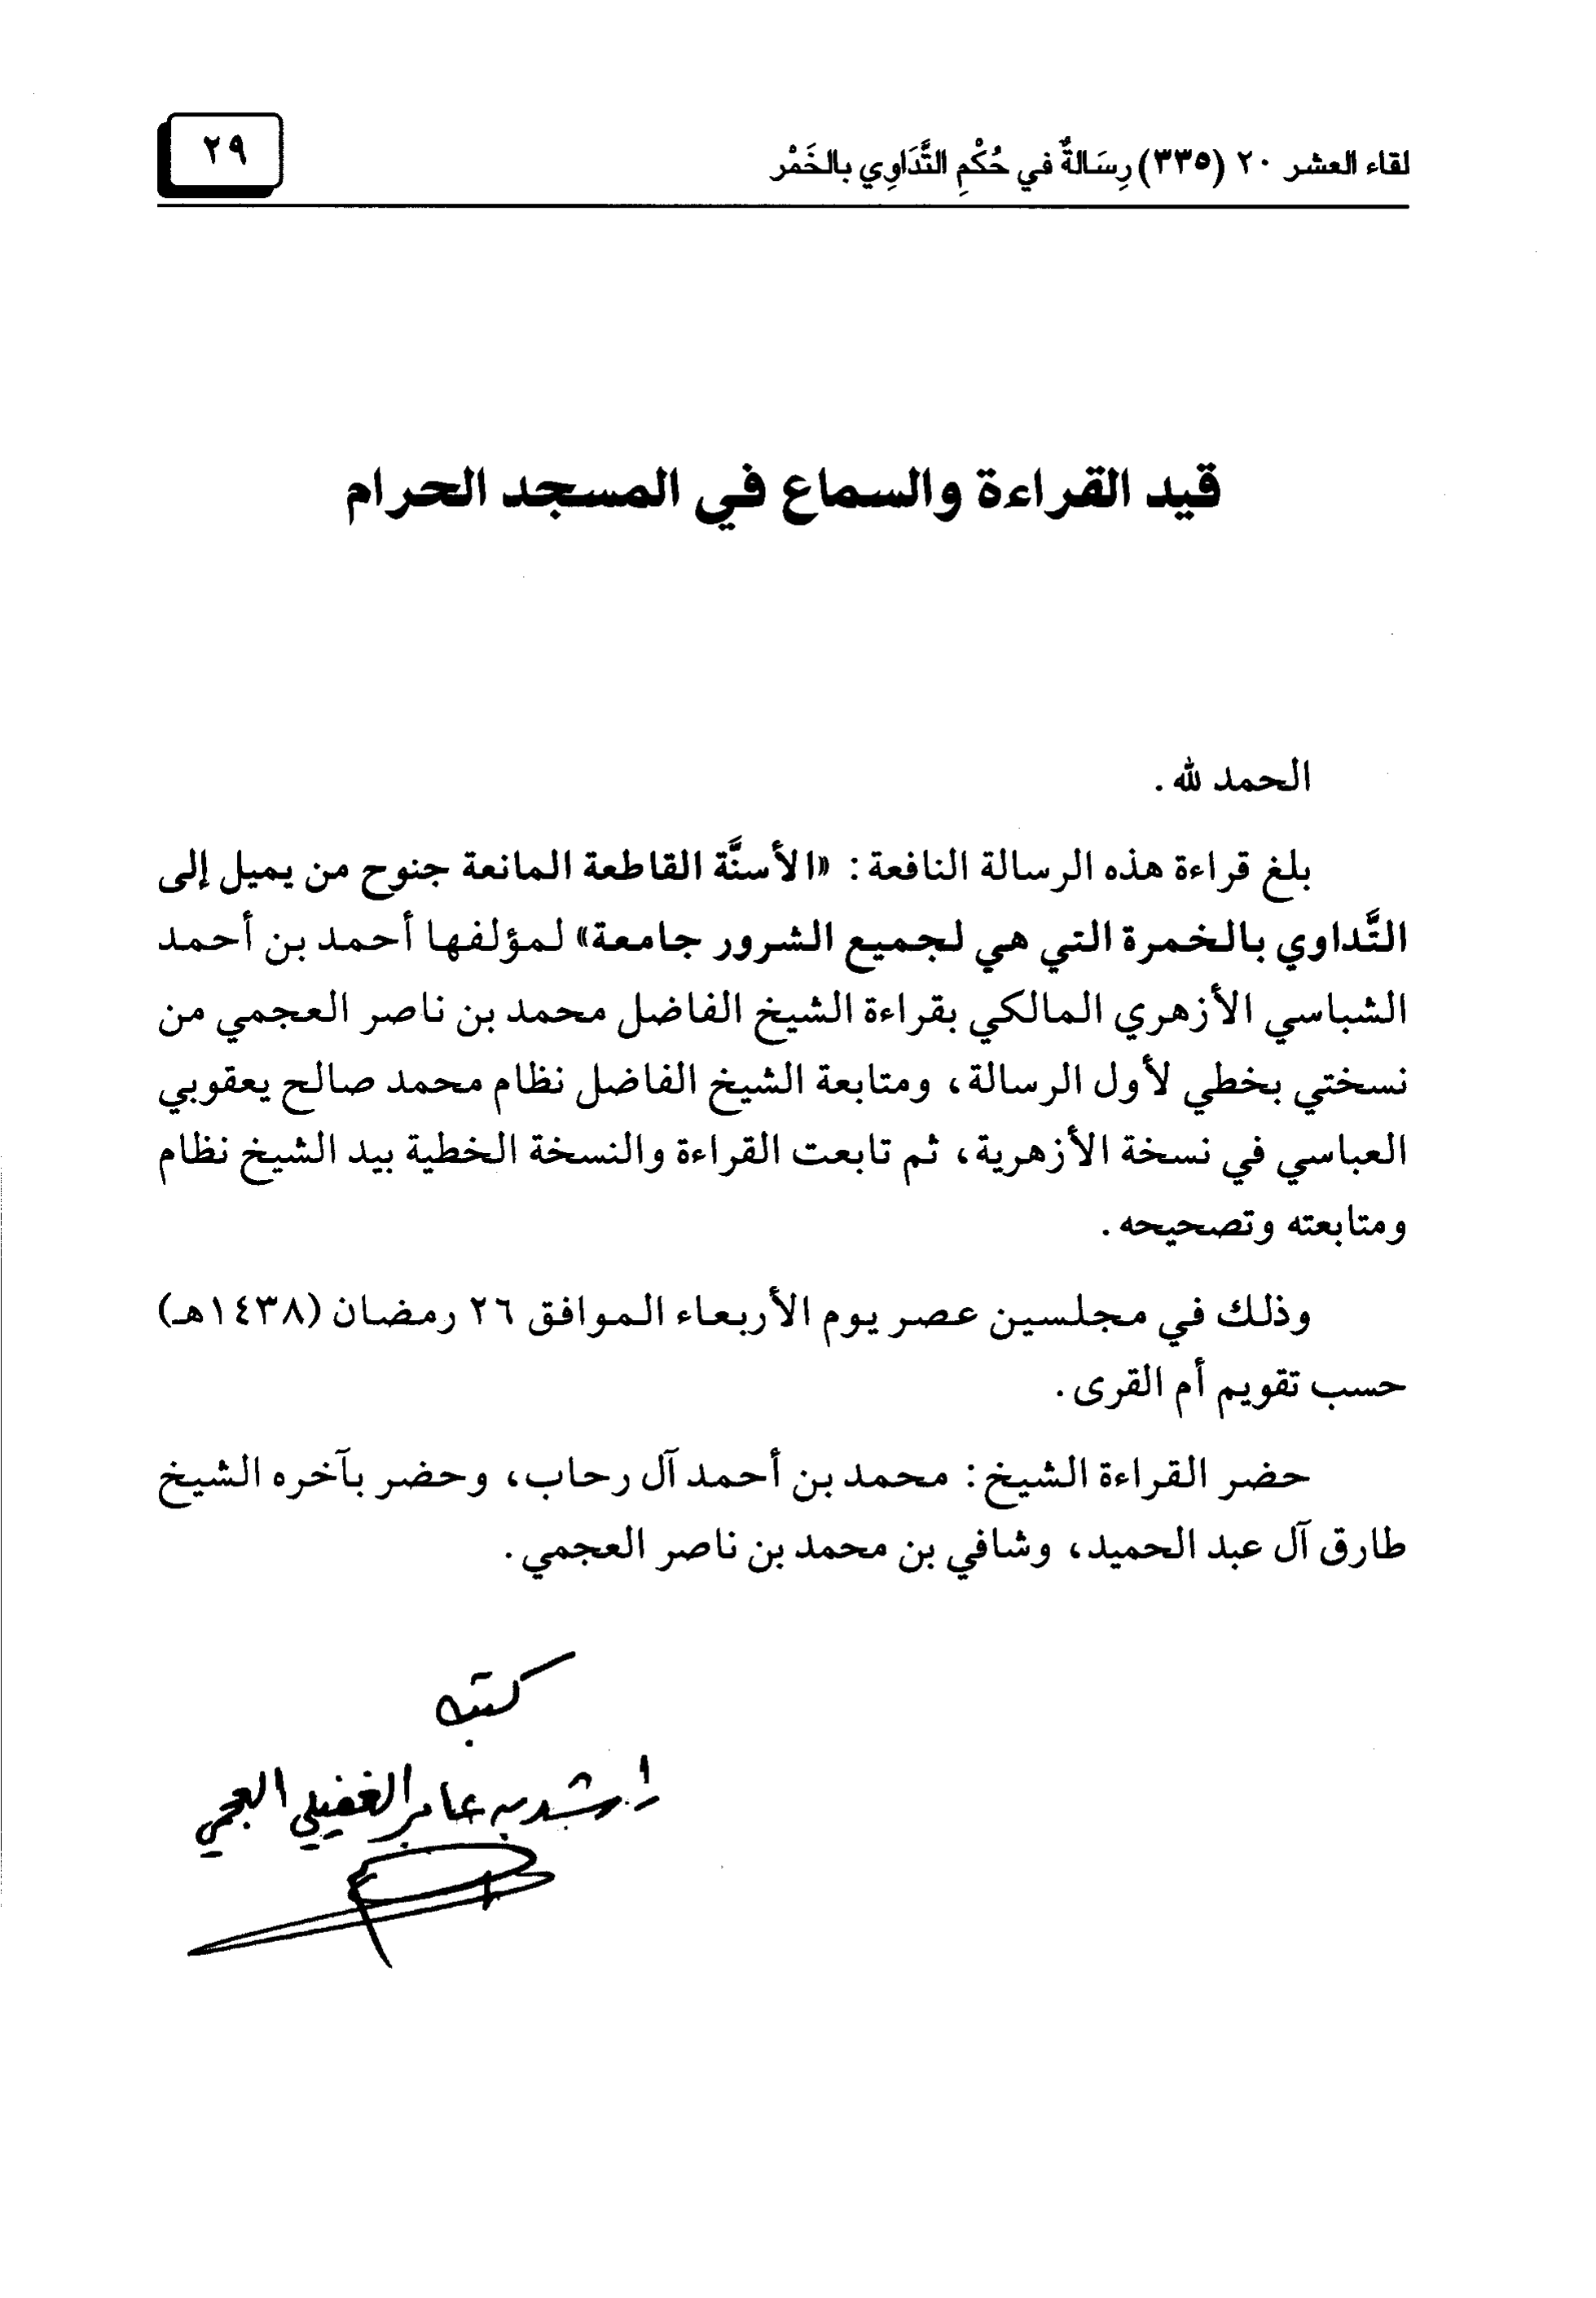 لقاء العشر ٢٠ (٣٣٥) رِسَالةٌ في حُكْمِ التَّدَاوِي بالخَمْر
٢٩
قيد القراءة والسماع في المسجد الحرام
الحمد لله .
بلغ قراءة هذه الرسالة النافعة : «الأسنَّة القاطعة المانعة جنوح من يميل إلى
التَّداوي بالخمرة التي هي لجميع الشرور جامعة» لمؤلفها أحمد بن أحمد
الشباسي الأزهري المالكي بقراءة الشيخ الفاضل محمد بن ناصر العجمي من
نسختي بخطي لأول الرسالة ، ومتابعة الشيخ الفاضل نظام محمد صالح يعقوبي
العباسي في نسخة الأزهرية ، ثم تابعت القراءة والنسخة الخطية بيد الشيخ نظام
ومتابعته وتصحيحه .
وذلك في مجلسين عصر يوم الأربعاء الموافق ٢٦ رمضان (١٤٣٨هـ)
حسب تقويم أم القرى .
حضر القراءة الشيخ : محمد بن أحمد آل رحاب ، وحضر بآخره الشيخ
طارق آل عبد الحميد ، وشافي بن محمد بن ناصر العجمي .
كتبه
راشد بن عامر الغفيلي العجمي